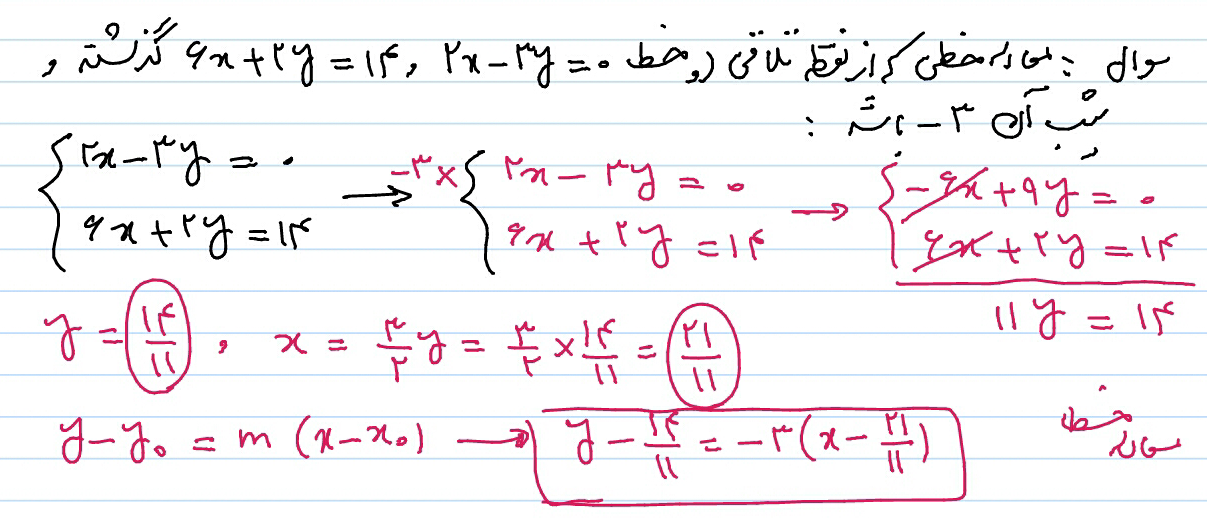 سوال : معادله خطی که از نقطه تلاقی دو خط ۲x − ۳y = ۰ و ۶x + ۲y = ۱۴ گذشته و
شیب آن ۳ − باشد :
{ ۲x − ۳y = ۰ → −۳× { ۲x − ۳y = ۰ → { −۶x + ۹y = ۰
۶x + ۲y = ۱۴ ۶x + ۲y = ۱۴ ۶x + ۲y = ۱۴
۱۱y = ۱۴
y = ۱۴/۱۱ , x = ۳/۲ y = ۳/۲ × ۱۴/۱۱ = ۲۱/۱۱
y − y₀ = m (x − x₀) → y − ۱۴/۱۱ = −۳(x − ۲۱/۱۱) معادله خط